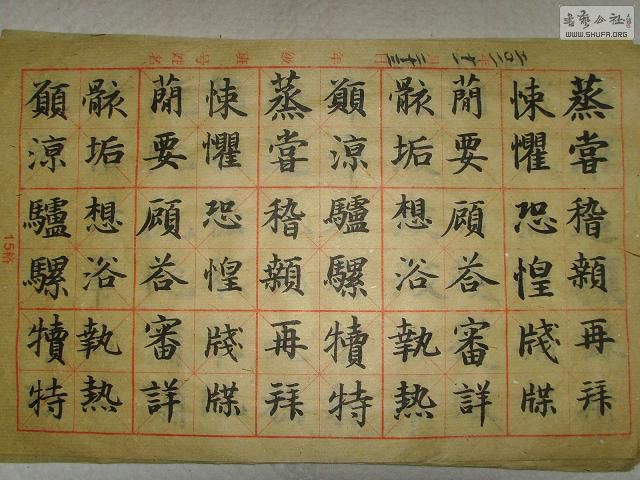 蒸嘗稽顙再拜
悚懼恐惶牋牒
蕳要顧荅審詳
骸垢想浴執熱
願涼驢騾犢特
蒸嘗稽顙再拜
悚懼恐惶牋牒
蕳要顧荅審詳
骸垢想浴執熱
願涼驢騾犢特
年级
班号
姓名
15格
書藝公社
WWW.SHUFA.ORG